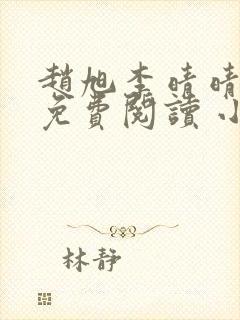 趙旭李晴晴
免費閱讀小
林靜